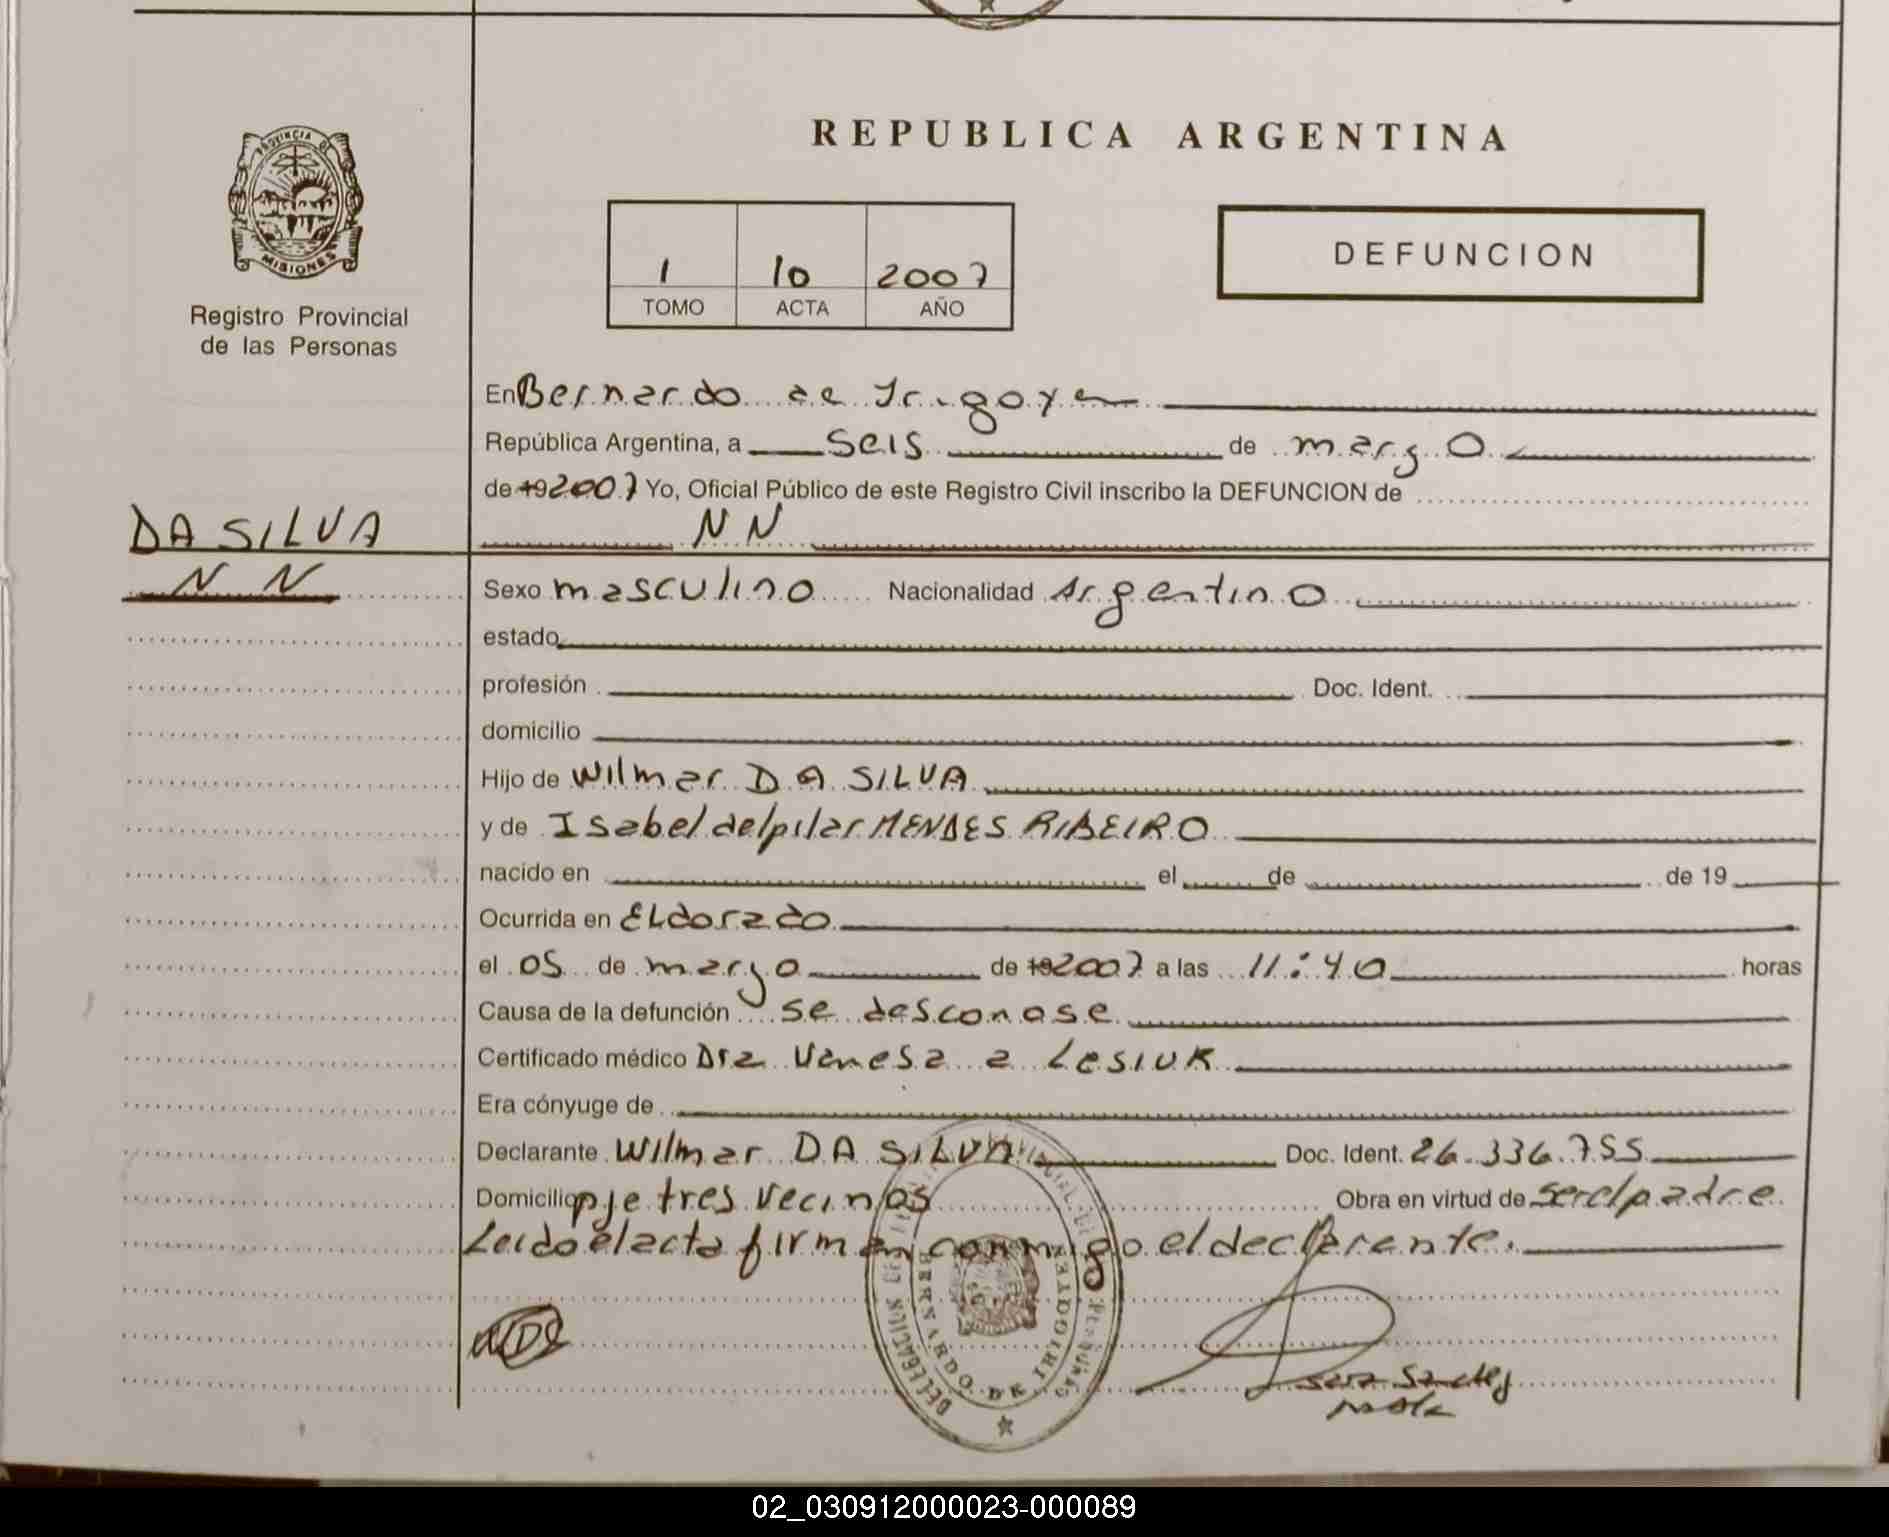 PROVINCIA DE
MISIONES
Registro Provincial
de las Personas
REPUBLICA ARGENTINA
1 10 2007
TOMO ACTA AÑO
DEFUNCION
En Bernardo de Irigoyen
República Argentina, a seis de marzo
de 19 2007 Yo, Oficial Público de este Registro Civil inscribo la DEFUNCION de
DA SILVA
N N
N N
Sexo masculino Nacionalidad Argentino
estado
profesión Doc. Ident.
domicilio
Hijo de Wilmar DA SILVA
y de Isabel del pilar MENDES RIBEIRO
nacido en el de de 19
Ocurrida en ELdorado
el 05 de marzo de 19 2007 a las 11:40 horas
Causa de la defunción se desconose
Certificado médico Dra Vanesa a LESIUK
Era cónyuge de
Declarante Wilmar DA SILVA Doc. Ident. 26.336.755
Domicilio pje tres vecinos Obra en virtud de ser el padre
Leido el acta firman conmigo el declarante.
DELEGACION
BERNARDO DE IRIGOYEN
02_030912000023-000089